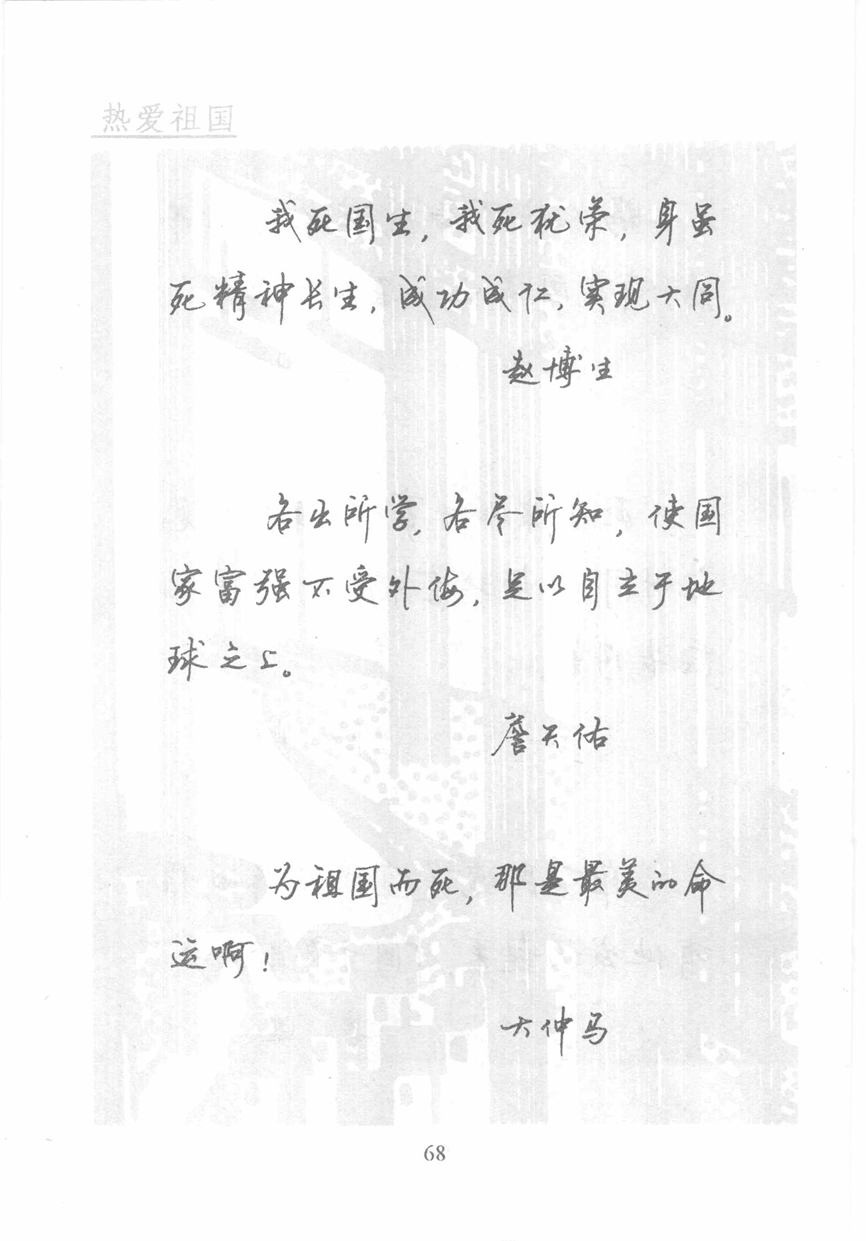 热爱祖国
我死国生，我死犹荣，身虽
死精神长生，成功成仁，实现大同。
赵博生
各出所学，各尽所知，使国
家富强不受外侮，足以自立于地
球之上。
詹天佑
为祖国而死，那是最美的命
运啊！
大仲马
68